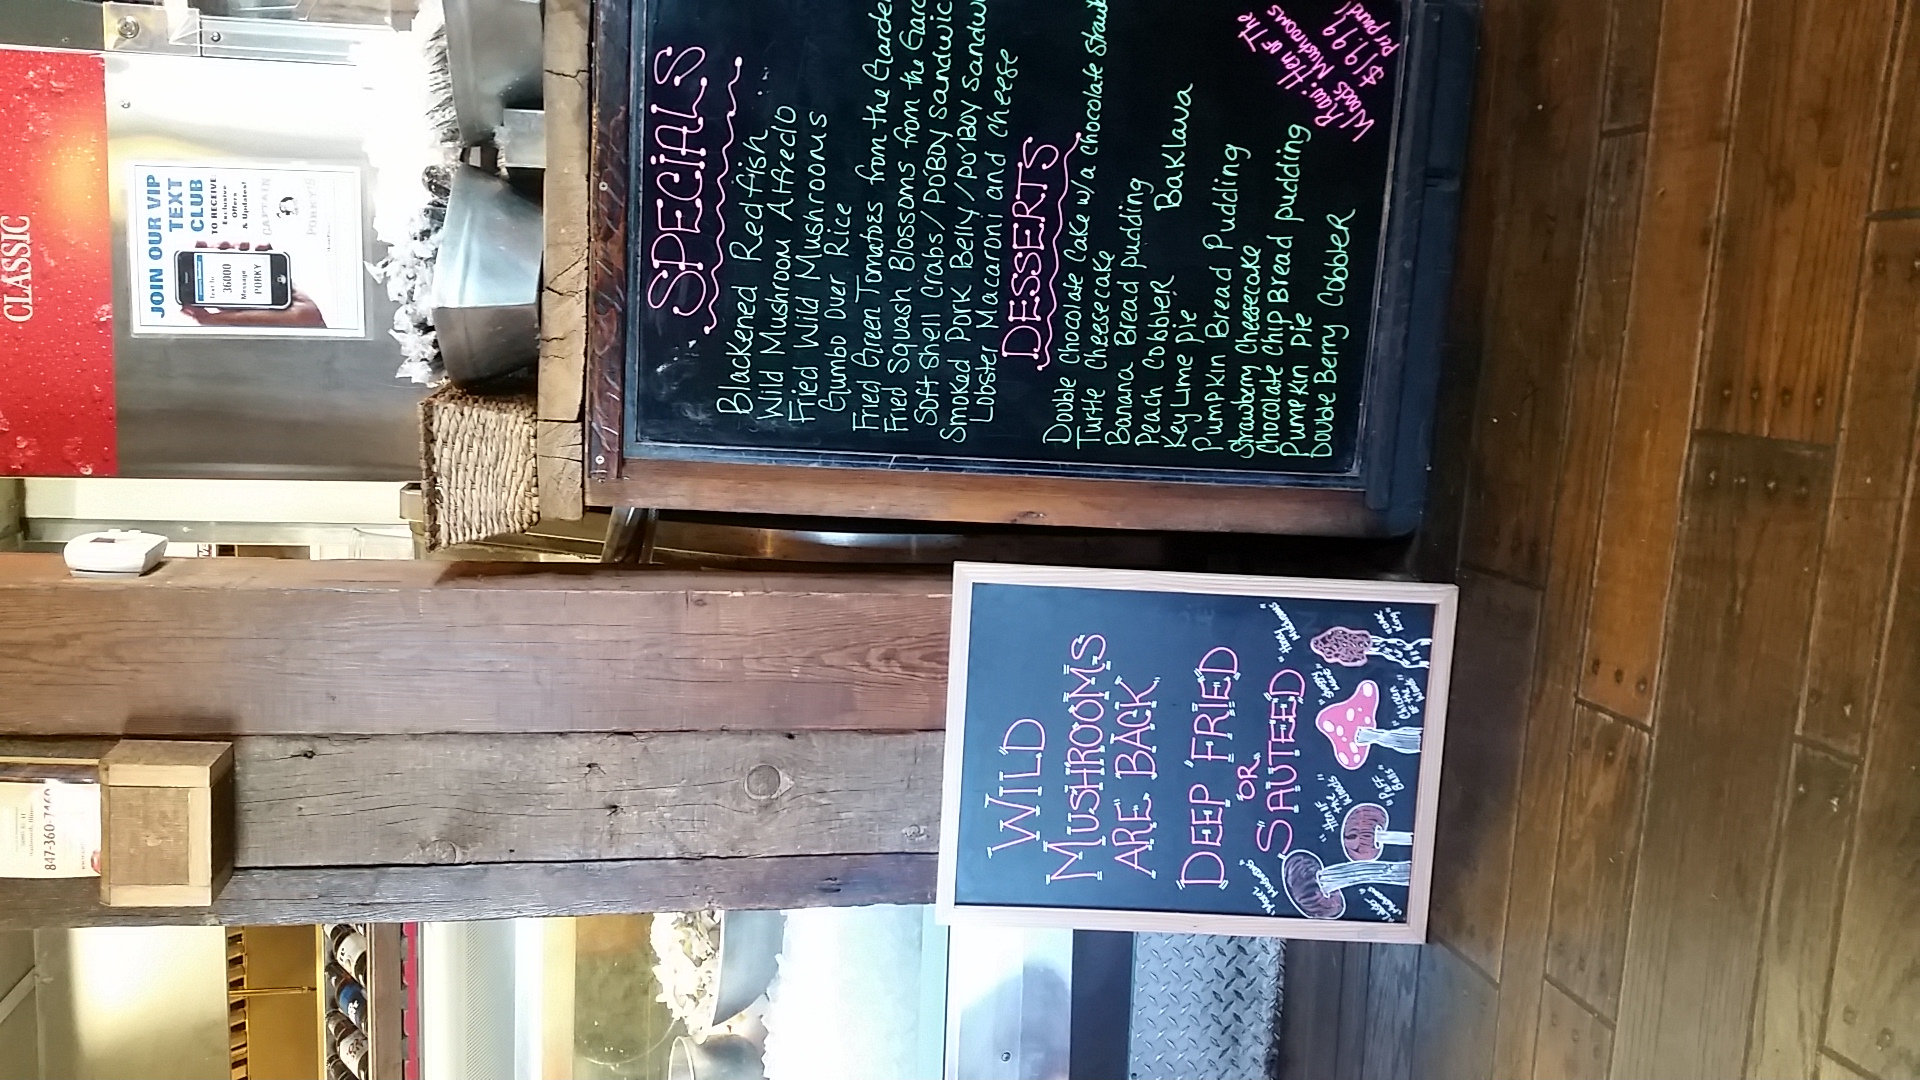 CLASSIC
JOIN OUR VIP
TEXT
CLUB
TO RECEIVE
Exclusive
Offers
& Updates!
CAPTAIN
PORKY'S
Text To
36000
Message
PORKY
SPECIALS
Blackened Redfish
Wild Mushroom Alfredo
Fried Wild Mushrooms
Gumbo over Rice
Fried Green Tomatoes from the Garden
Fried Squash Blossoms from the Gard
Softshell Crabs/PoiBoy Sandwic
Smoked Pork Belly/po'iBoy Sandw
Lobster Macaroni and Cheese
DESSERTS
Double Chocolate Cake w/a Chocolate Straw
Turtle Cheesecake
Banana Bread pudding
Peach Cobbler Baklava
Key Lime pie
Pumpkin Bread Pudding
Strawberry Cheesecake
Chocolate Chip Bread pudding
Pumpkin Pie
Double Berry Cobbler
Raw: Hen of The
Woods Mushrooms
$19.99
Per pound!
847-360-7460
WILD
MUSHROOMS
ARE BACK
DEEP FRIED
OR
SAUTEED
"Morel Mushrooms"
"Hen of the Woods"
"Puff Balls"
"Chicken of the Woods"